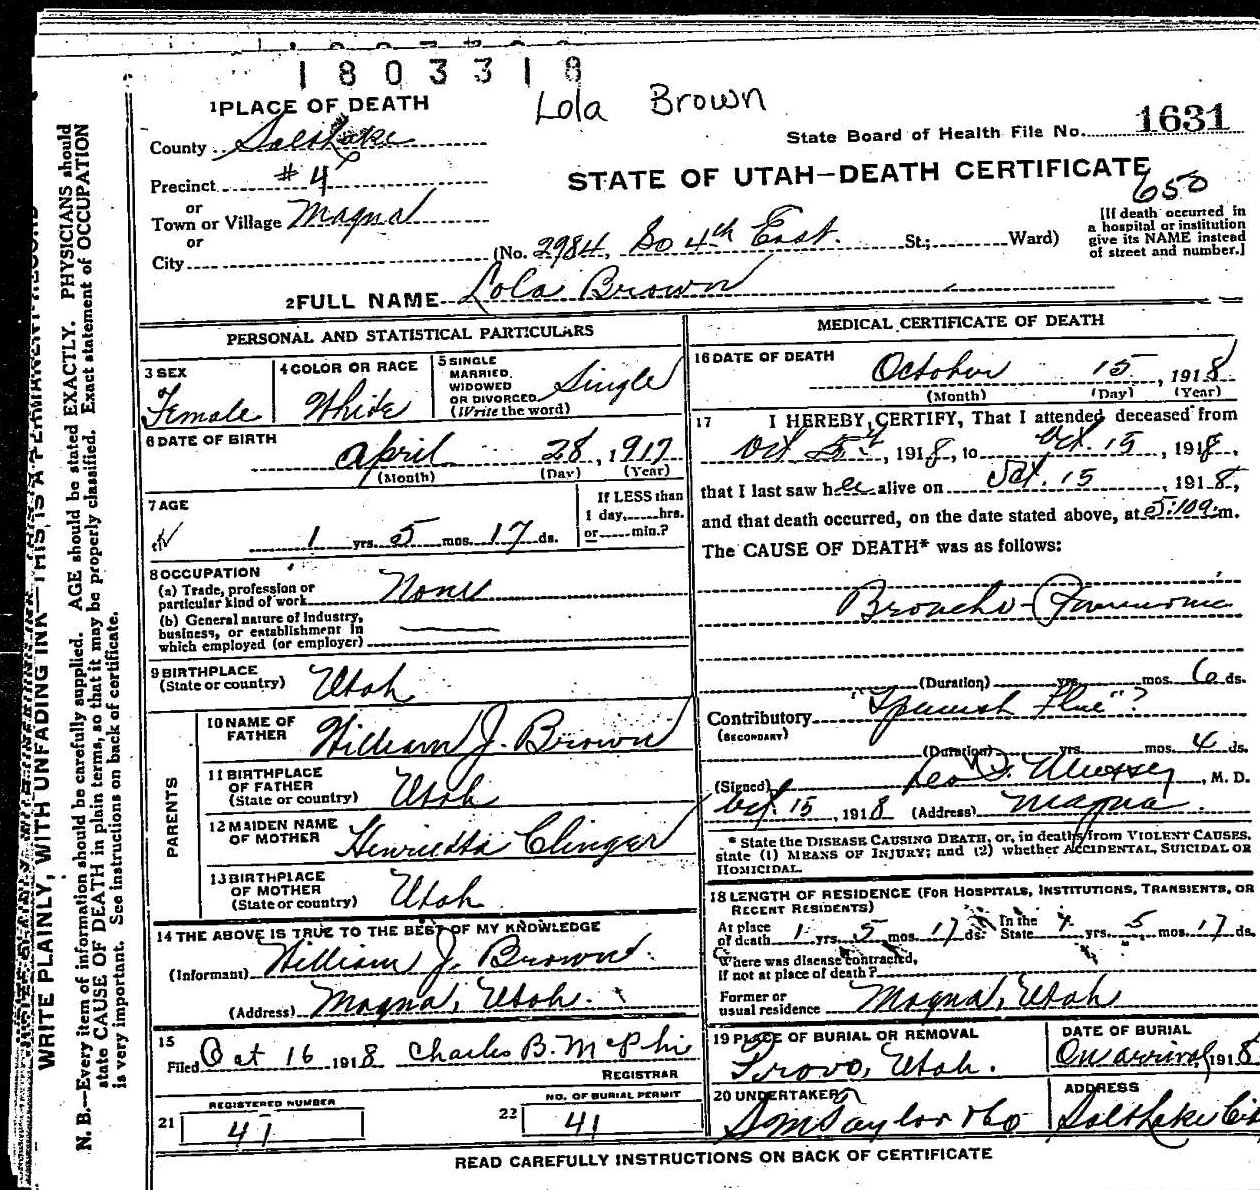 1803318
Lola Brown
1 PLACE OF DEATH
State Board of Health File No. 1631
County Salt Lake
STATE OF UTAH—DEATH CERTIFICATE
650
Precinct #4
or
Town or Village Magna
or
City
(No. 2984, So 4th East. St.; Ward)
[If death occurred in
a hospital or institution
give its NAME instead
of street and number.]
2 FULL NAME Lola Brown
PERSONAL AND STATISTICAL PARTICULARS
3 SEX
Female
4 COLOR OR RACE
White
5 SINGLE
MARRIED,
WIDOWED
OR DIVORCED
(Write the word)
Single
6 DATE OF BIRTH
April 28, 1917
(Month) (Day) (Year)
7 AGE
1 yrs. 5 mos. 17 ds.
If LESS than
1 day, hrs.
or min.?
8 OCCUPATION
(a) Trade, profession or
particular kind of work None
(b) General nature of industry,
business, or establishment in
which employed (or employer)
9 BIRTHPLACE
(State or country) Utah
PARENTS
10 NAME OF
FATHER William J. Brown
11 BIRTHPLACE
OF FATHER
(State or country) Utah
12 MAIDEN NAME
OF MOTHER Henrietta Clinger
13 BIRTHPLACE
OF MOTHER
(State or country) Utah.
14 THE ABOVE IS TRUE TO THE BEST OF MY KNOWLEDGE
(Informant) William J. Brown.
(Address) Magna, Utah.
15
Filed Oct 16 1918 Charles B. McPhie
REGISTRAR
21 REGISTERED NUMBER
41
22 NO. OF BURIAL PERMIT
41
MEDICAL CERTIFICATE OF DEATH
16 DATE OF DEATH
October 15, 1918
(Month) (Day) (Year)
17 I HEREBY CERTIFY, That I attended deceased from
Oct , 1918, to Oct. 15, 1918,
that I last saw her alive on Oct. 15, 1918,
and that death occurred, on the date stated above, at m.
The CAUSE OF DEATH* was as follows:
Broncho-Pneumonia
(Duration) yrs. mos. 6 ds.
Contributory "Spanish Flue"?
(SECONDARY)
(Duration) yrs. mos. 4 ds.
(Signed) Leo , M. D.
Oct. 15, 1918 (Address) Magna.
* State the DISEASE CAUSING DEATH, or, in deaths from VIOLENT CAUSES,
state (1) MEANS OF INJURY; and (2) whether ACCIDENTAL, SUICIDAL OR
HOMICIDAL.
18 LENGTH OF RESIDENCE (FOR HOSPITALS, INSTITUTIONS, TRANSIENTS, OR
RECENT RESIDENTS)
At place
of death 1 yrs. 5 mos. 17 ds.
In the
State yrs. 5 mos. 17 ds.
Where was disease contracted,
if not at place of death?
Former or
usual residence Magna, Utah
19 PLACE OF BURIAL OR REMOVAL
Provo, Utah.
DATE OF BURIAL
On arrival, 1918
20 UNDERTAKER
S M Taylor & Co
ADDRESS
Salt Lake
READ CAREFULLY INSTRUCTIONS ON BACK OF CERTIFICATE
WRITE PLAINLY, WITH UNFADING INK—THIS IS A PERMANENT RECORD
N. B.—Every item of information should be carefully supplied. AGE should be stated EXACTLY. PHYSICIANS should
state CAUSE OF DEATH in plain terms, so that it may be properly classified. Exact statement of OCCUPATION
is very important. See instructions on back of certificate.